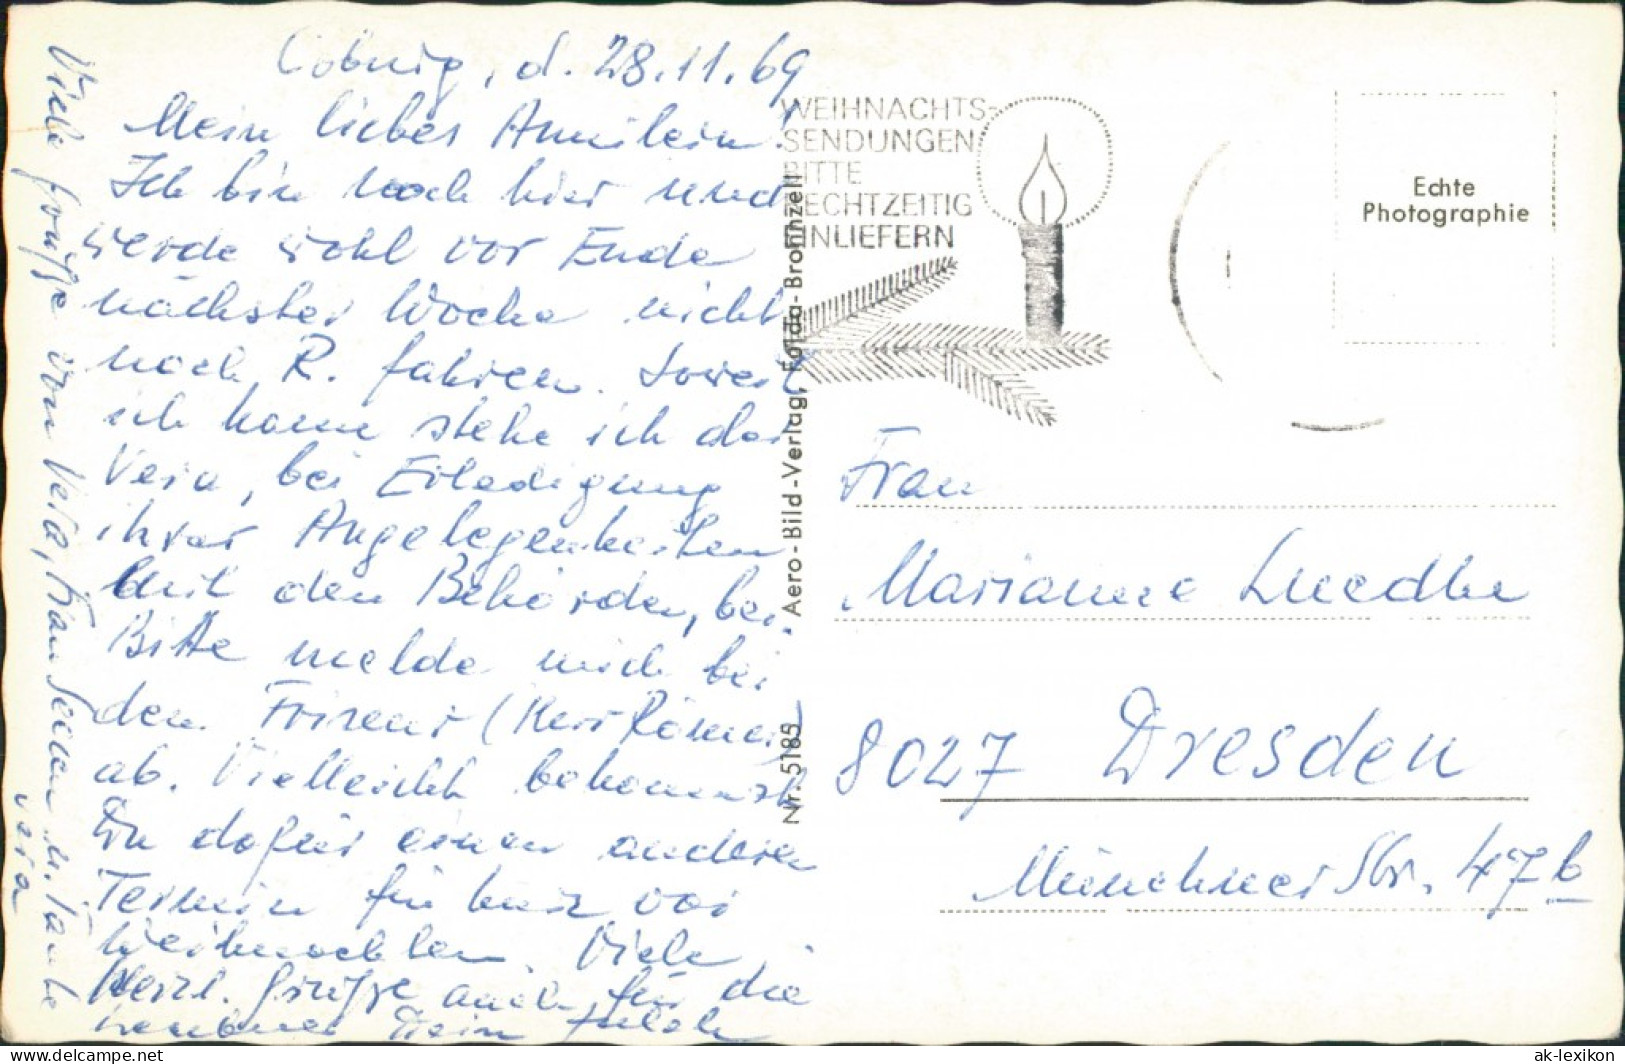 Coburg, d. 28.11.69
Mein liebes Annilein!
Ich bin noch hier und
werde wohl vor Ende
nächster Woche nicht
nach R. fahren. Soweit
ich kann stehe ich der
Vera, bei Erledigung
ihrer Angelegenheiten
mit den Behörden, bei.
Bitte melde mich bei
dem Friseur (Herr Römer)
ab. Vielleicht bekommst
Du dafür einen anderen
Termin für kurz vor
Weihnachten. Viele
Herzl. Grüße auch für die
Dein
Viele Grüße von Vera, u. Tante
Vera
WEIHNACHTS-
SENDUNGEN
BITTE
RECHTZEITIG
EINLIEFERN
Echte
Photographie
Nr. 5185 Aero-Bild-Verlag, Fulda-Bronnzell
Frau
Marianne
8027 Dresden
Münchner Str. 47b
AKPOOL.CO.UK
ak-lexikon